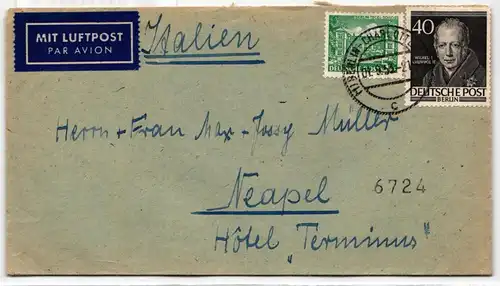 MIT LUFTPOST
PAR AVION
Italien
40
DEUTSCHE POST
BERLIN
Herrn + Frau Max - Jossy Müller
Neapel
6724
Hôtel "Terminus"